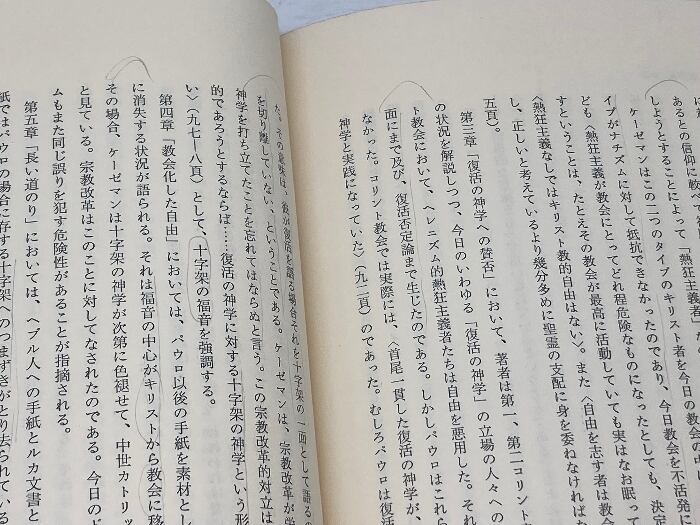 イブがナチズムに対して抵抗できなかったのであり、今日教会を不活発に
ケーゼマンはこの二つのタイプのキリスト者を今日の教会の
しようとすることによって「熱狂主義者」
あるとの信仰に於て
ども〈熱狂主義が教会にとってどれ程危険なものになったとしても、決定
すということは、たとえその教会が最高に活動していても実はなお眠って
〈熱狂主義なしではキリスト教的自由はない〉。また〈自由を志す者は教
し、正しいと考えているより幾分多めに聖霊の支配に身を委ねなければな
五頁)。
第三章「復活の神学への賛否」において、著者は第一、第二コリント
の状況を解説しつつ、今日のいわゆる「復活の神学」の立場の人々への
ト教会において、ヘレニズム的熱狂主義者たちは自由を悪用した。それ
面にまで及び、復活否定論まで生じたのである。しかしパウロはこれら
なかった。コリント教会では実際には、〈首尾一貫した復活の神学が、
神学と実践になっていた〉(九二頁)のであった。むしろパウロは復活
た。その意味は、彼が復活を語る場合それを十字架の一面として語るの
を切り離していない、ということである。ケーゼマンは、宗教改革が学
神学を打ち立てたことを忘れてはならぬと言う。この宗教改革的対立は
的であろうとするならば……復活の神学に対する十字架の神学という形
い〉(九七―八頁)として、十字架の福音を強調する。
第四章「教会化した自由」においては、パウロ以後の手紙を素材とし
に消失する状況が語られる。それは福音の中心がキリストから教会に移
その場合、ケーゼマンは十字架の神学が次第に色褪せて、中世カトリッ
と見ている。宗教改革はこのことに対してなされたのである。今日の
ムもまた同じ誤りを犯す危険性があることが指摘される。
第五章「長い道のり」においては、ヘブル人への手紙とルカ文書と
紙ではパウロの場合に存する十字架へのつまずきがとり去られている